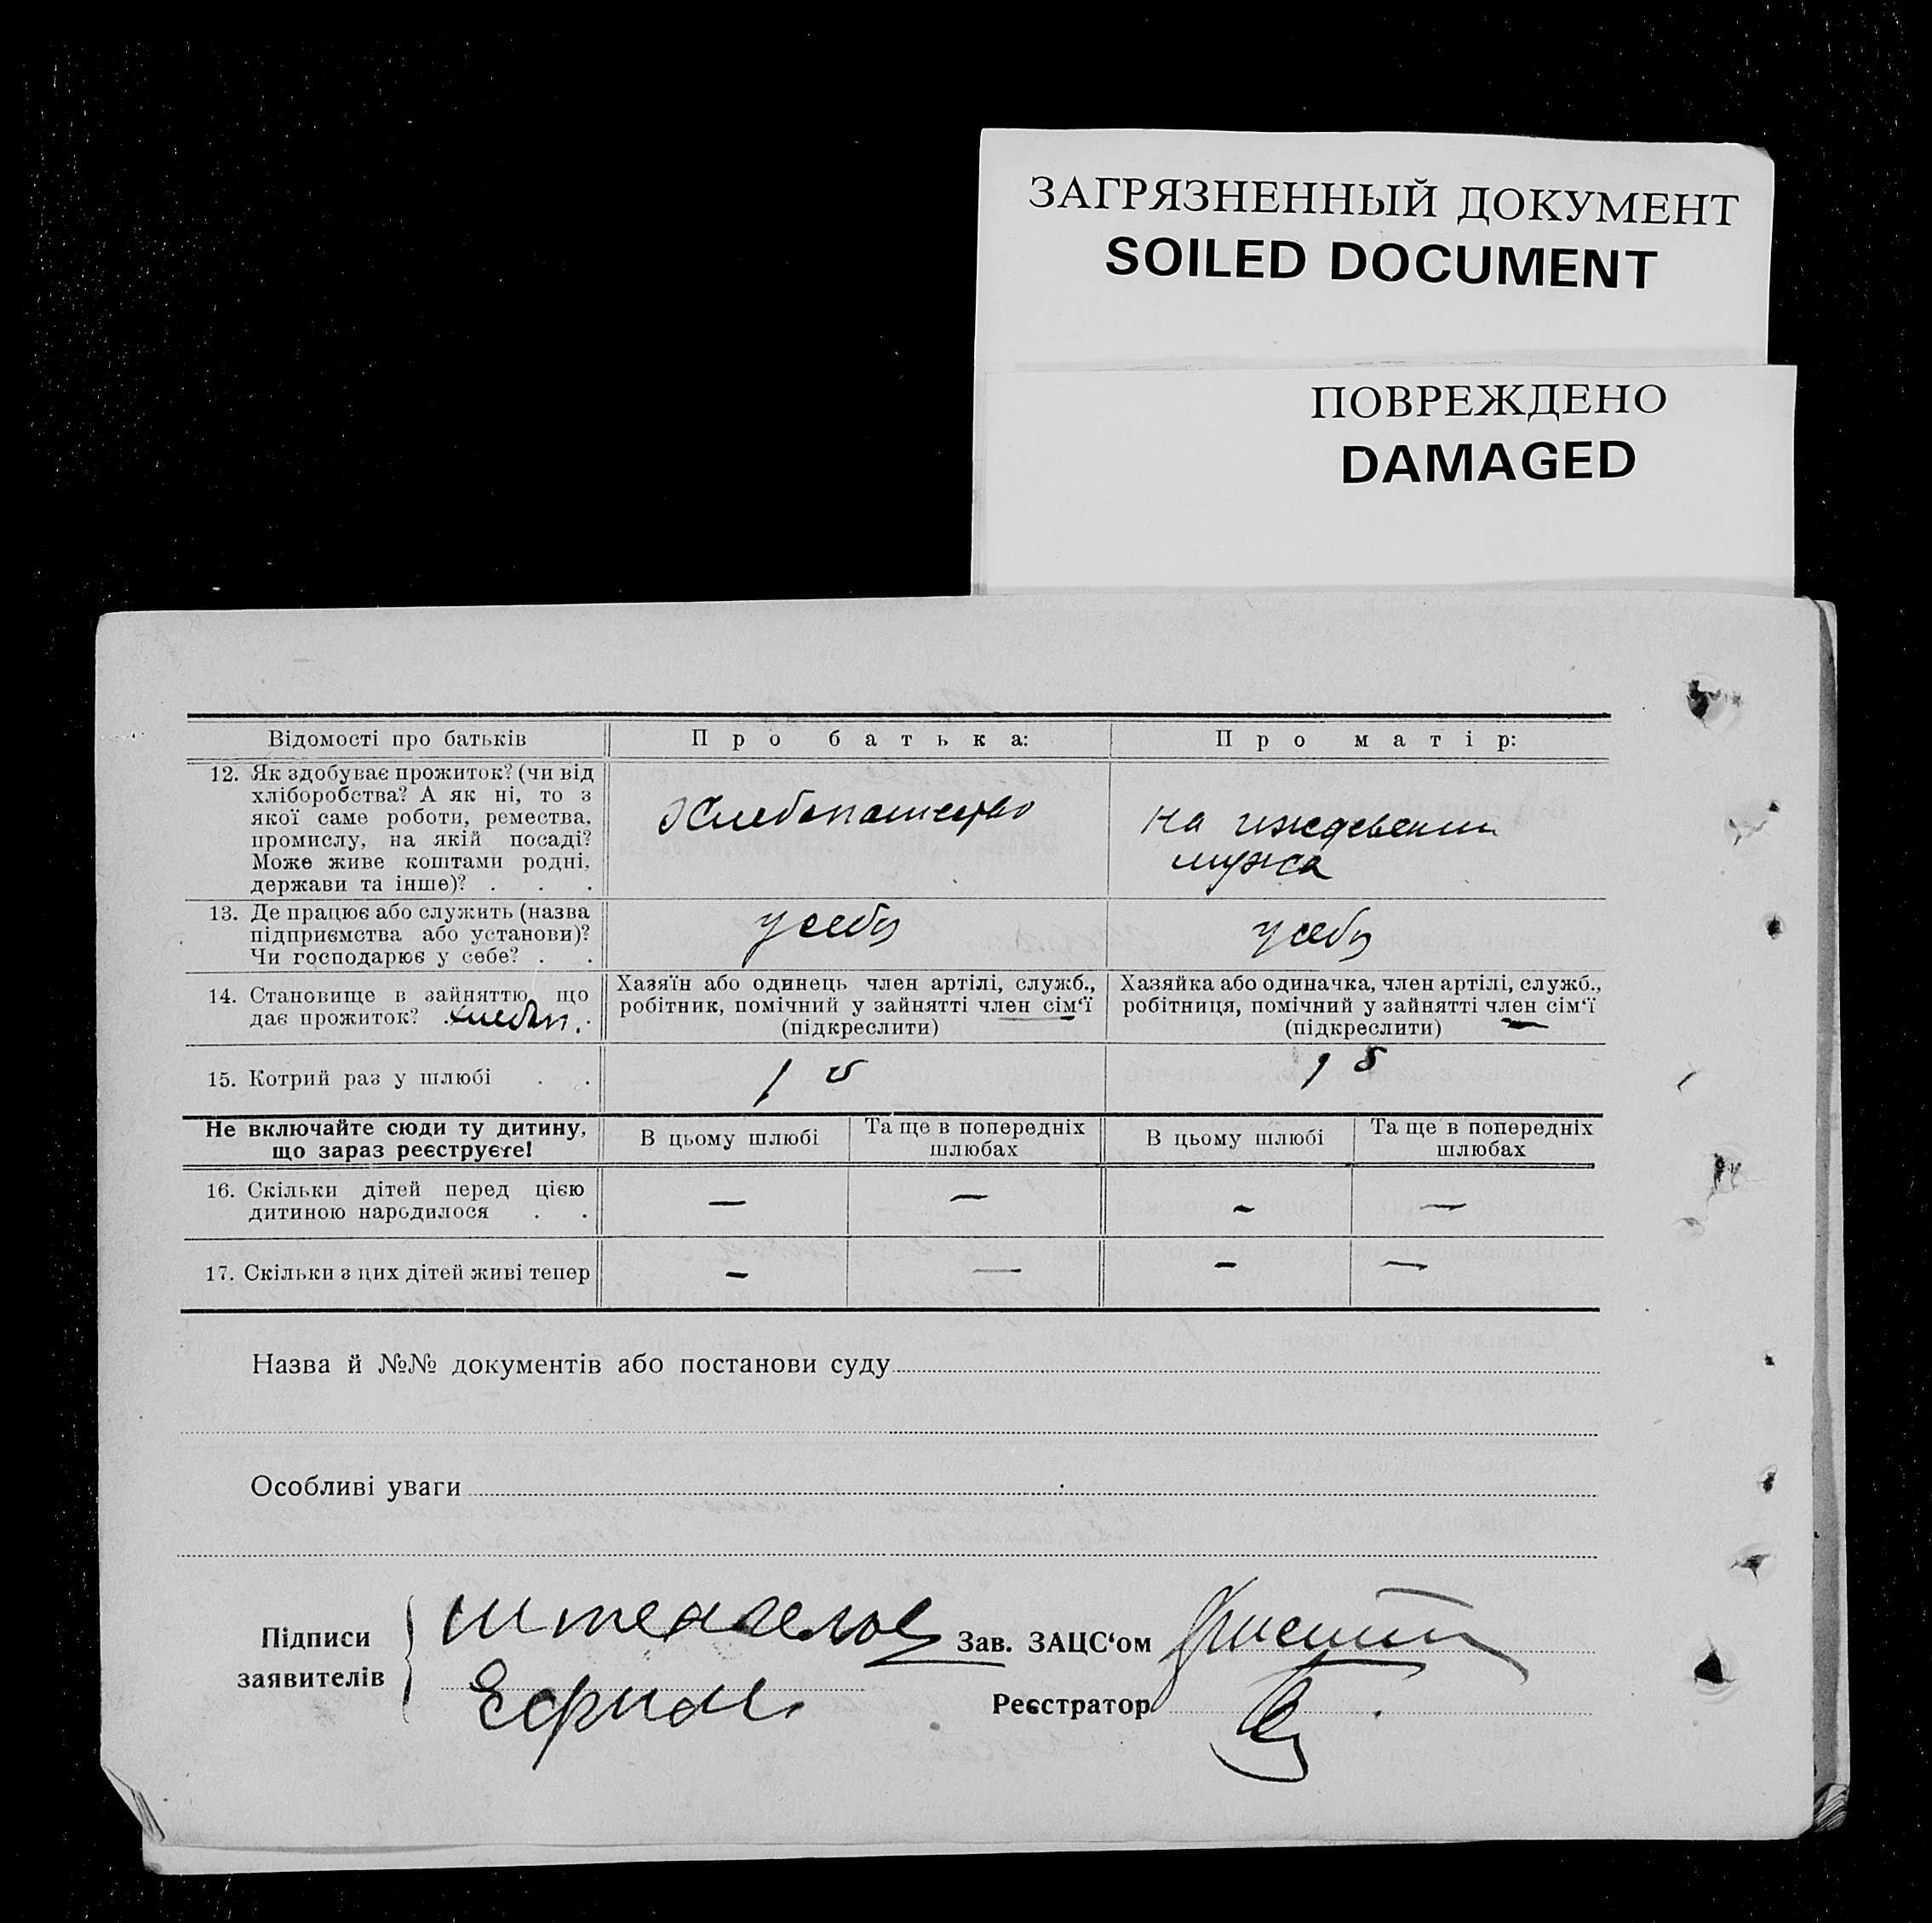 ЗАГРЯЗНЕННЫЙ ДОКУМЕНТ
SOILED DOCUMENT
ПОВРЕЖДЕНО
DAMAGED
Відомості про батьків
Про батька:
Про матір:
12. Як здобуває прожиток? (чи від
хліборобства? А як ні, то з
якої саме роботи, ремества,
промислу, на якій посаді?
Може живе коштами родні,
держави та інше)? . . .
Хлебопашество
на иждевении
мужа
13. Де працює або служить (назва
підприємства або установи)?
Чи господарює у себе? . .
у себя
у себя
14. Становище в зайняттю, що
дає прожиток? . хлебоп. .
Хазяїн або одинець член артілі, служб.,
робітник, помічний у зайнятті член сім'ї
(підкреслити)
Хазяйка або одиначка, член артілі, служб.,
робітниця, помічний у зайнятті член сім'ї
(підкреслити)
15. Котрий раз у шлюбі . .
1 й
1 й
Не включайте сюди ту дитину,
що зараз реєструєте!
В цьому шлюбі
Та ще в попередніх
шлюбах
В цьому шлюбі
Та ще в попередніх
шлюбах
16. Скільки дітей перед цією
дитиною народилося . .
— — — —
17. Скільки з цих дітей живі тепер
— — — —
Назва й №№ документів або постанови суду
Особливі уваги
Підписи
заявителів
Зав. ЗАЦС'ом
Ефрим
Реєстратор